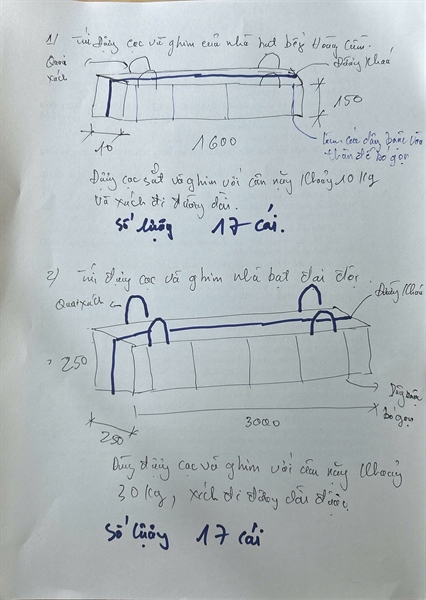 1) Túi đựng cọc và ghim của nhà bạt bếp Hoàng Cầm.
Quai xách
Dây khoá
150
10
1600
thân để bó gọn
Đựng cọc sắt và ghim với cân nặng khoảng 10 kg
và xách đi đường dài.
Số lượng 17 cái.
2) Túi đựng cọc và ghim nhà bạt đại đội
Quai xách
Dây khoá
250
250
3000
bó gọn
Dùng đựng cọc và ghim với cân nặng khoảng
30 kg, xách đi đường dài được
Số lượng 17 cái